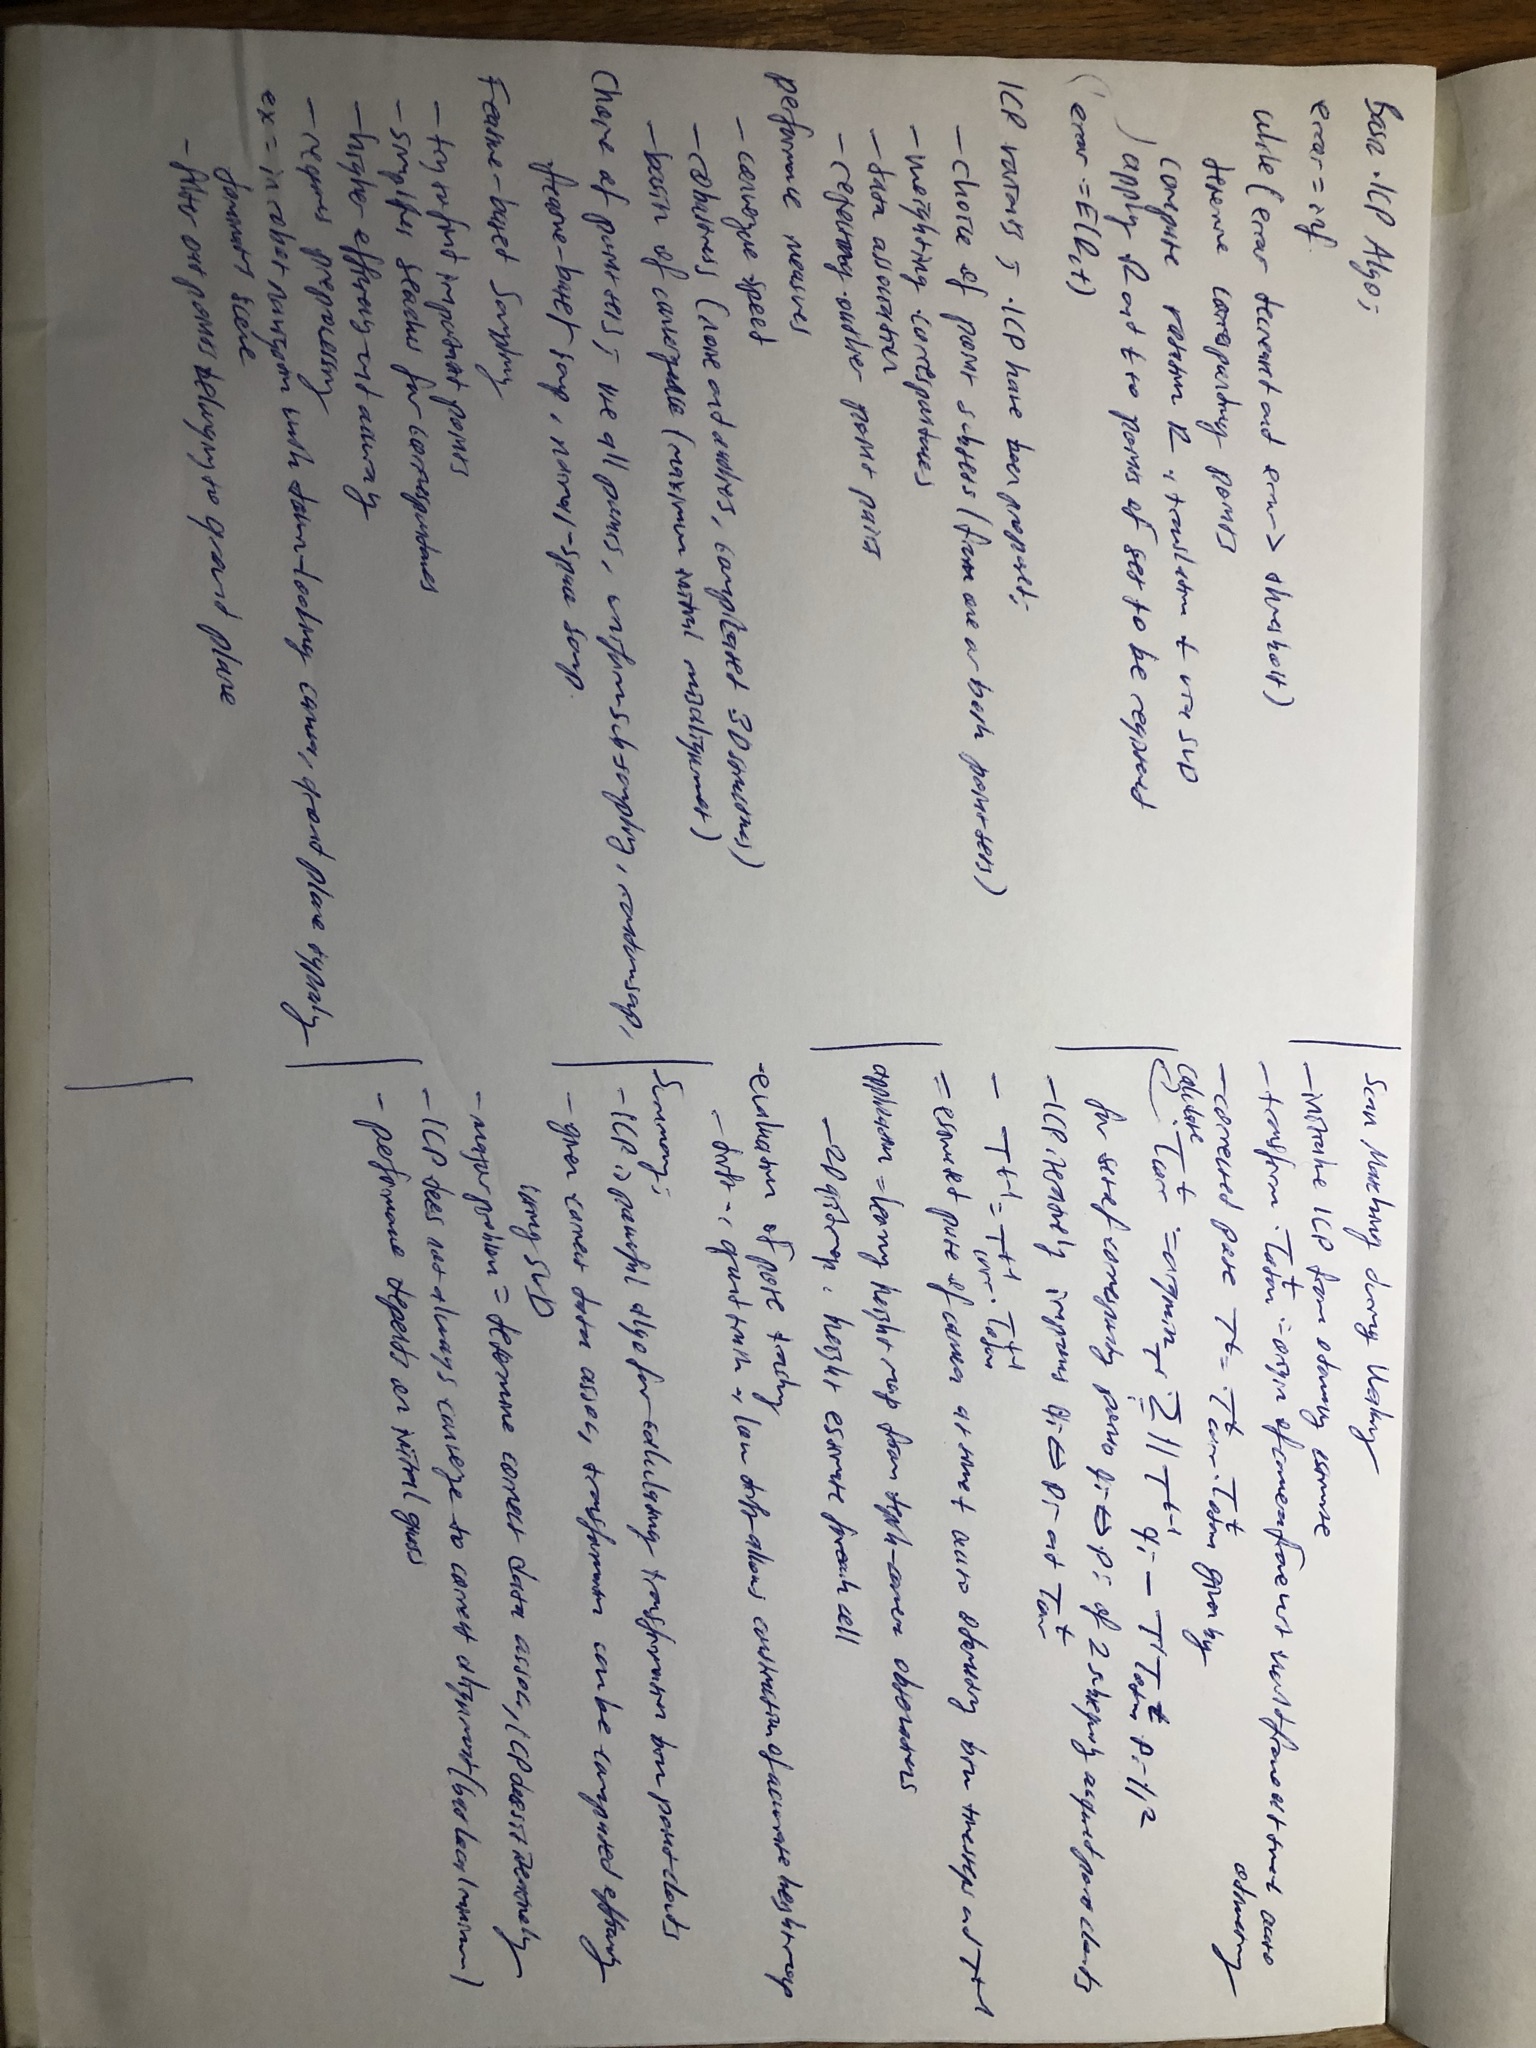 Basic ICP Algo:
error = inf
while (error decreased and error > threshold)
determine corresponding points
compute rotation R, translation t via SVD
apply R and t to points of set to be registered
error = E(R,t)
ICP variants : ICP have been proposed:
- choice of point subsets (from one or both point sets)
- weighting correspondences
- data association
- rejecting outlier point pairs
performance measures
- convergence speed
- robustness (noise and outliers, complicated 3D structures)
- basin of convergence (maximum initial misalignment)
Choice of point sets : use all points, uniform sub-sampling, random samp,
feature-based samp, normal-space samp.
Feature-based Sampling
- try to find important points
- simplifies search for correspondences
- higher efficiency and accuracy
- requires preprocessing
ex = in robot navigation with down-looking camera, ground plane typically
dominant scene
- filter out points belonging to ground plane
Scan Matching during Walking
- initialize ICP from odometry estimate
- transform T^t_odom : origin of camera frame wrt world frame at time t acc to
odometry
- corrected pose T^t = T^t_corr · T^t_odom given by
calculate T^t_corr = argmin_T Σ || T^t-1 q_i - T T^t_odom p_i ||²
for set of corresponding points q_i ⇔ p_i of 2 subseq acquired point clouds
- ICP iteratively improves q_i ⇔ p_i and T^t_corr
- T^t+1 = T^t+1_corr · T^t+1_odom
= estimated pose of camera at time t acc to odometry btw timesteps t and t+1
application = learning height map from depth-camera observations
- 2D grid map, height estimate for each cell
- evaluation of pose tracking
- drift → ground truth → low drift allows construction of accurate height map
Summary:
- ICP is powerful algo for calculating transformation btw point clouds
- given correct data assoc, transformation can be computed efficiently
using SVD
- major problem = determine correct data assoc, ICP does it iteratively
- ICP does not always converge to correct alignment (but local minimum)
- performance depends on initial guess